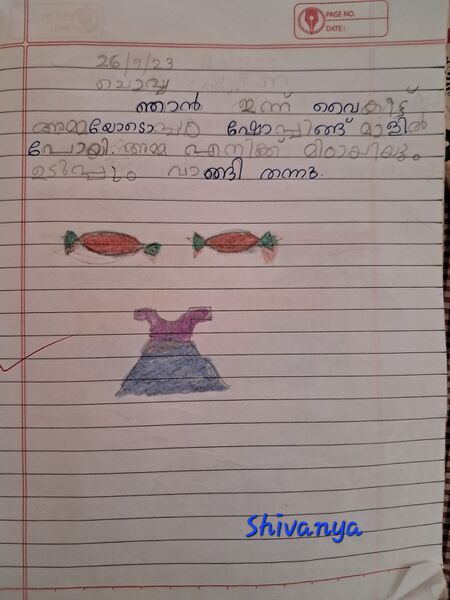 PAGE NO.
DATE:
26/9/23
ചൊവ്വ
ഞാൻ ഇന്ന് വൈകീട്ട്
അമ്മയോടൊപ്പം ഷോപ്പിങ്ങ് മാളിൽ
പോയി. അമ്മ എനിക്ക് മിഠായിയും
ഉടുപ്പും വാങ്ങി തന്നു.
Shivanya